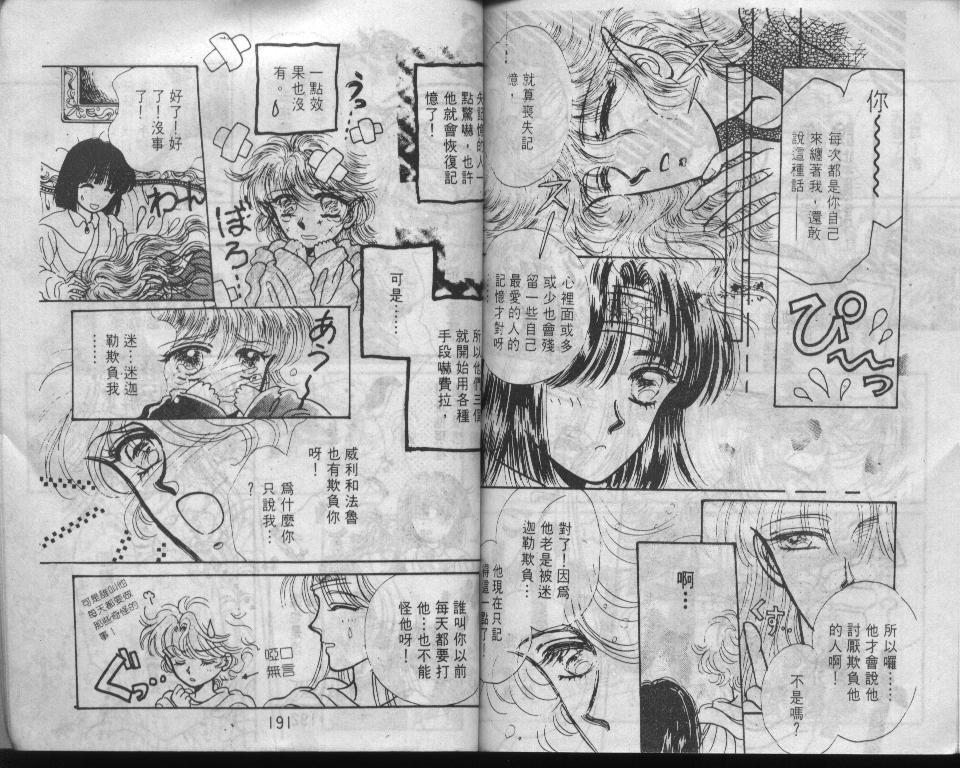 你
每次都是你自己
來纏著我，還敢
說這種話——
ぴーっ
就算喪失記
憶，
心裡面或多
或少也會殘
留一些自己
最愛的人的
記憶才對呀
……
所以囉……
他才會說他
討厭欺負他
的人啊！
不是嗎？
くす…
啊…
對了！因為
他老是被迷
迦勒欺負…
他現在只記
得這一點了！
失記憶的人一
點驚嚇，也許
他就會恢復記
憶了！
所以他們三個
就開始用各種
手段嚇費拉，
可是……
一點效
果也沒
有。
うっ…
ぼろ…
好了！好
了！沒事
了！
わーん
あうー
迷…迷迦
勒欺負我
……
威利和法魯
也有欺負你
呀！
為什麼你
只說我…
？
誰叫你以前
每天都要打
他…也不能
怪他呀！
啞口
無言
可是誰叫他
每天都要做
那些奇怪的
事！
？
ぐっ…
191